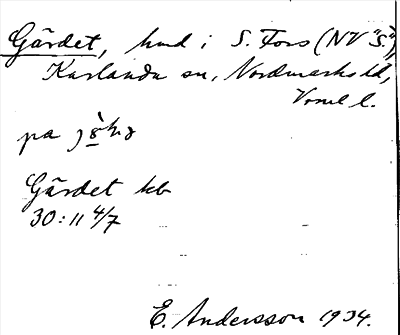 Gärdet, hmd i S. Fors (NV "S.")
Karlanda sn, Nordmarks hd,
Verml l.
på
Gärdet kb
30:11 4/7
E. Andersson 1934.